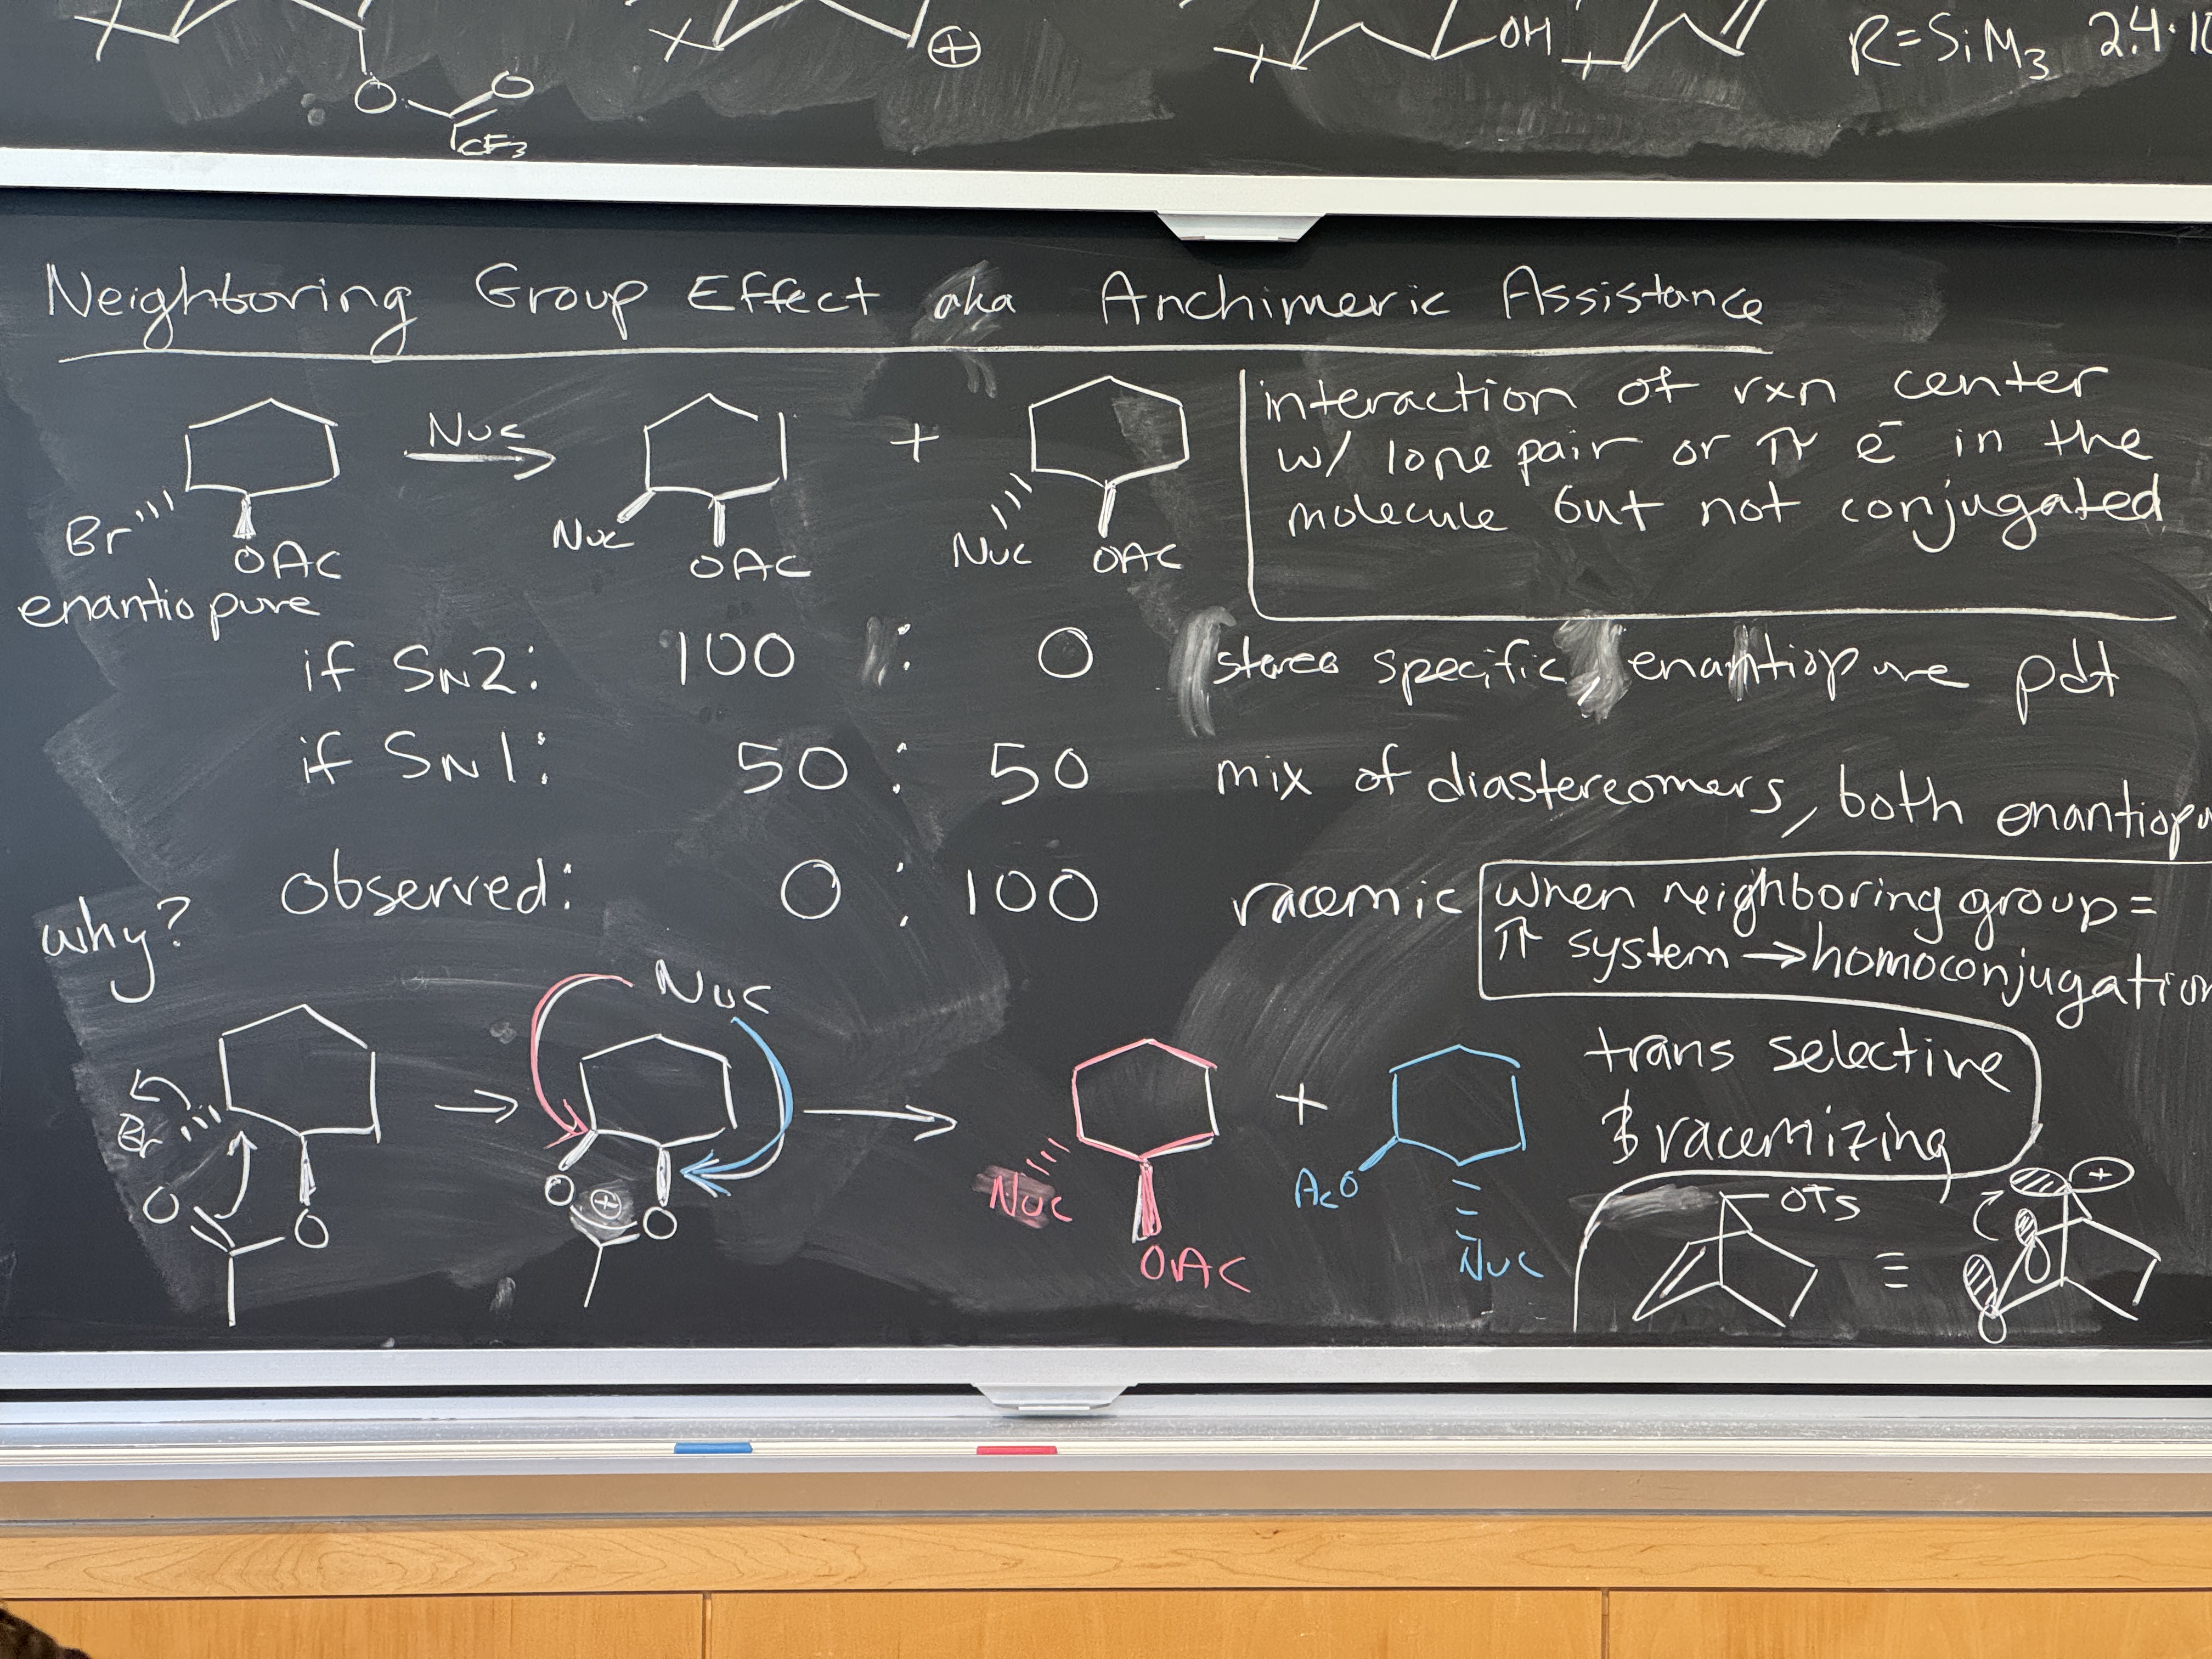 O O
CF3
⊕
OH
R=SiM3 2.4·10
Neighboring Group Effect aka Anchimeric Assistance
Br OAc
enantiopure
Nuc
Nuc OAc
+
Nuc OAc
interaction of rxn center
w/ lone pair or π e⁻ in the
molecule but not conjugated
if SN2: 100 : 0 stereo specific, enantiopure pdt
if SN1: 50 : 50 mix of diastereomers, both enantiopu
observed: 0 : 100 racemic
when neighboring group =
π system → homoconjugation
why?
Br O O
Nuc
O ⊕ O
Nuc OAc
+
AcO Nuc
trans selective
& racemizing
OTs
≡
+